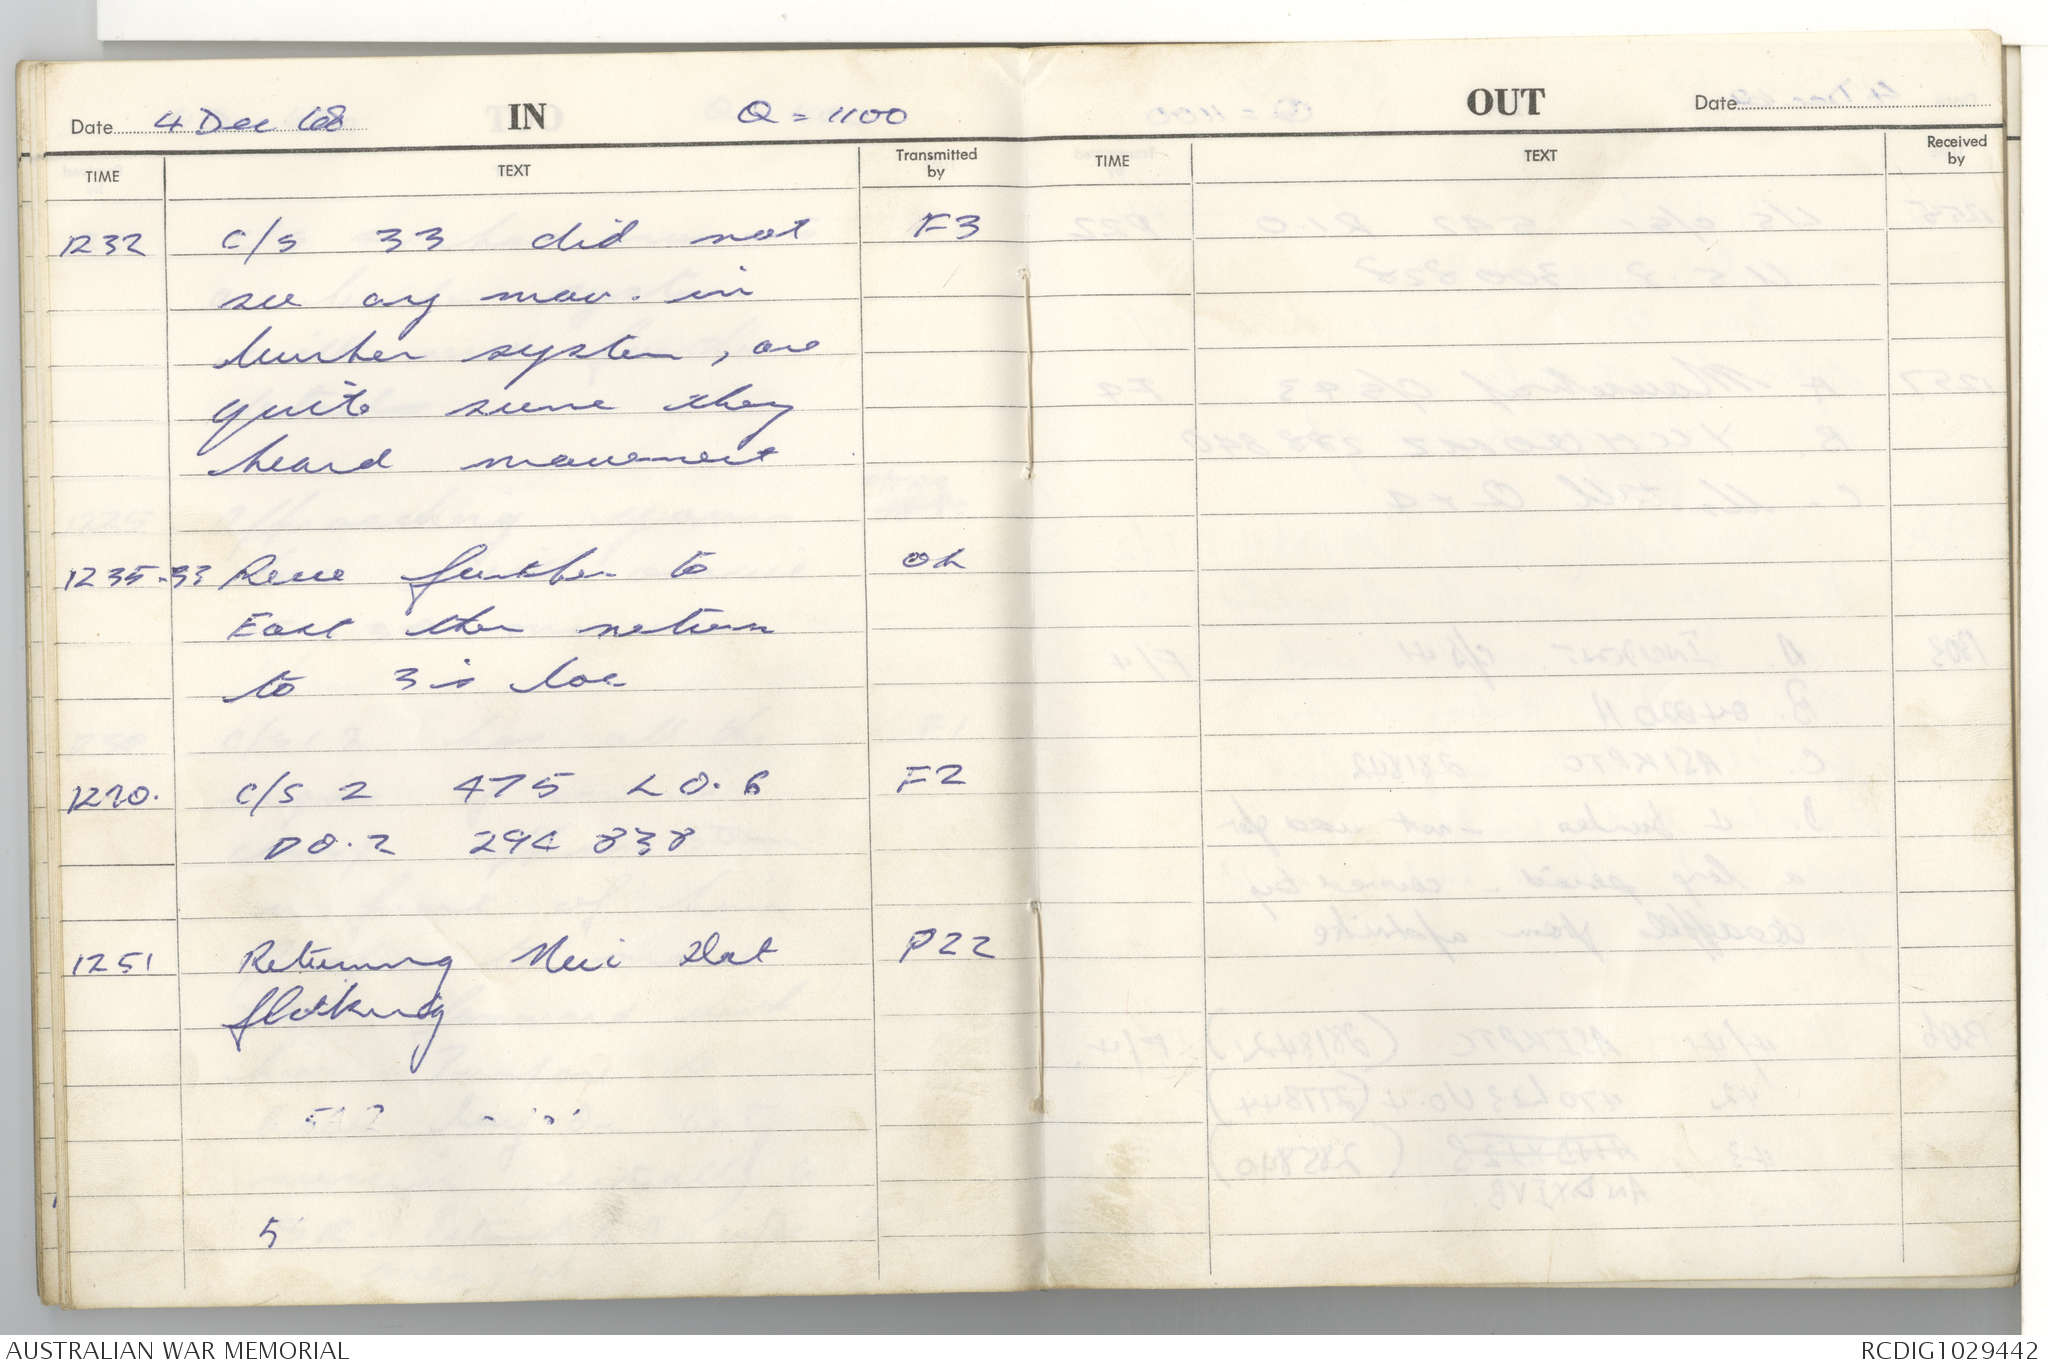 Date 4 Dec 68 IN Q = 1100
TIME TEXT Transmitted by
1232 C/S 33 did not F3
see any mov. in
bunker system, are
quite sure they
heard movement
1235 - 33 Rece further to
East then return
to 3's loc
C/S 2 475 L0.6 F2
D0.2 294 838
1251 Returning Nui Dat P22
5
OUT Date
TIME TEXT Received by
AUSTRALIAN WAR MEMORIAL
RCDIG1029442